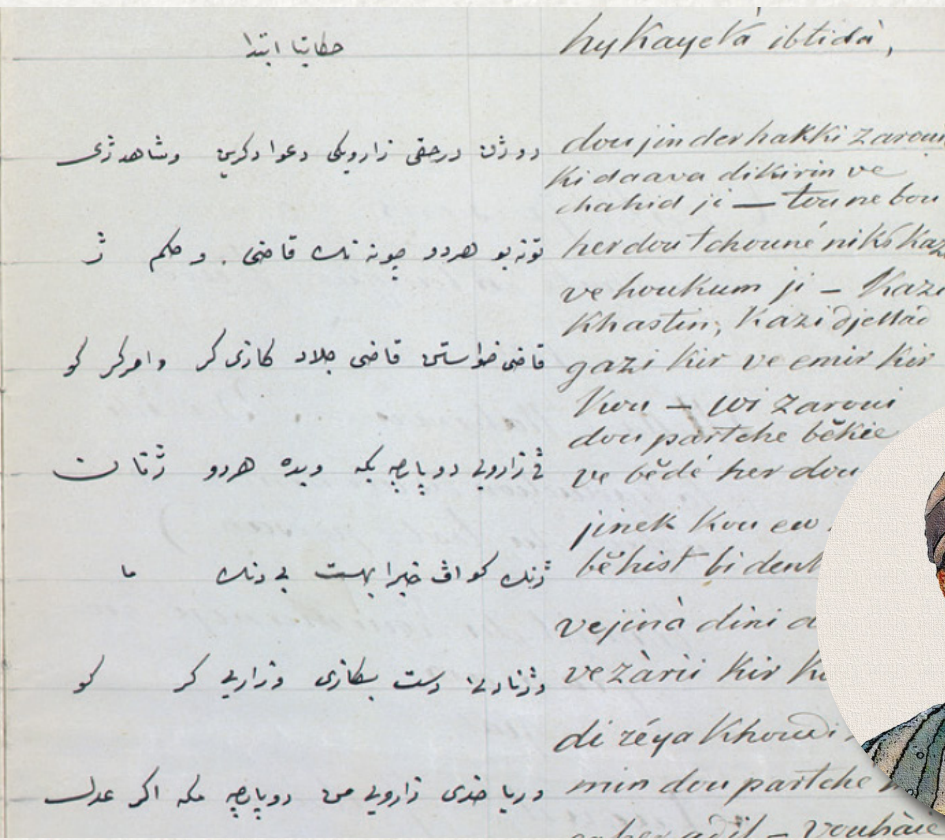 حكايتا ابتدا
دو ژن درحقى زارويكى دعوا دكرين وشاهد ژى
تونه بو هردو چونه نك قاضى . و حكم ژ
قاضى خواستن قاضى جلاد گازى كر وامر كر كو
ڤى زارويى دو پارچه بكه وبده هردو ژنان
ژنك كو اڤ خبرا بهست بى دنك ما
وژنا دنى دست بگازى وزاريى كر كو
دريا خدى زارويى من دو پارچه مكه اكر عدل
hykayeta ibtidà,
dou jin der hakki zaroui
ki daava dikirin ve
chahid ji — toune bou
her dou tchouné nik kazi
ve houkum ji — Kazi
Khastin, Kazi djellad
gazi kir ve emir kir
Kou — wi zaroui
dou partche bĕkie
ve bĕdé her dou
jinek Kou ew
bĕhist bi denk
ve jinà dini
ve zàrii kir
di réya Khoudi
min dou partche